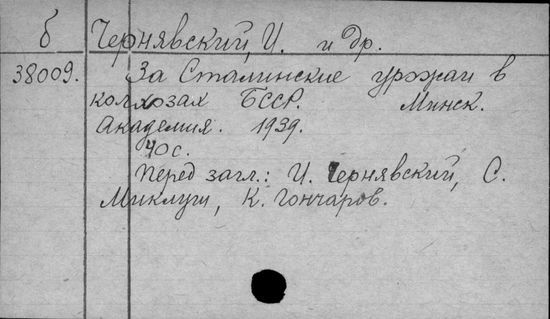 б Чернявский, И. и др.
38009. За Сталинские урожаи в
колхозах БССР. Минск.
Академия. 1939.
40 с.
Перед загл.: И. Чернявский, С.
Миклуш, К. Гончаров.